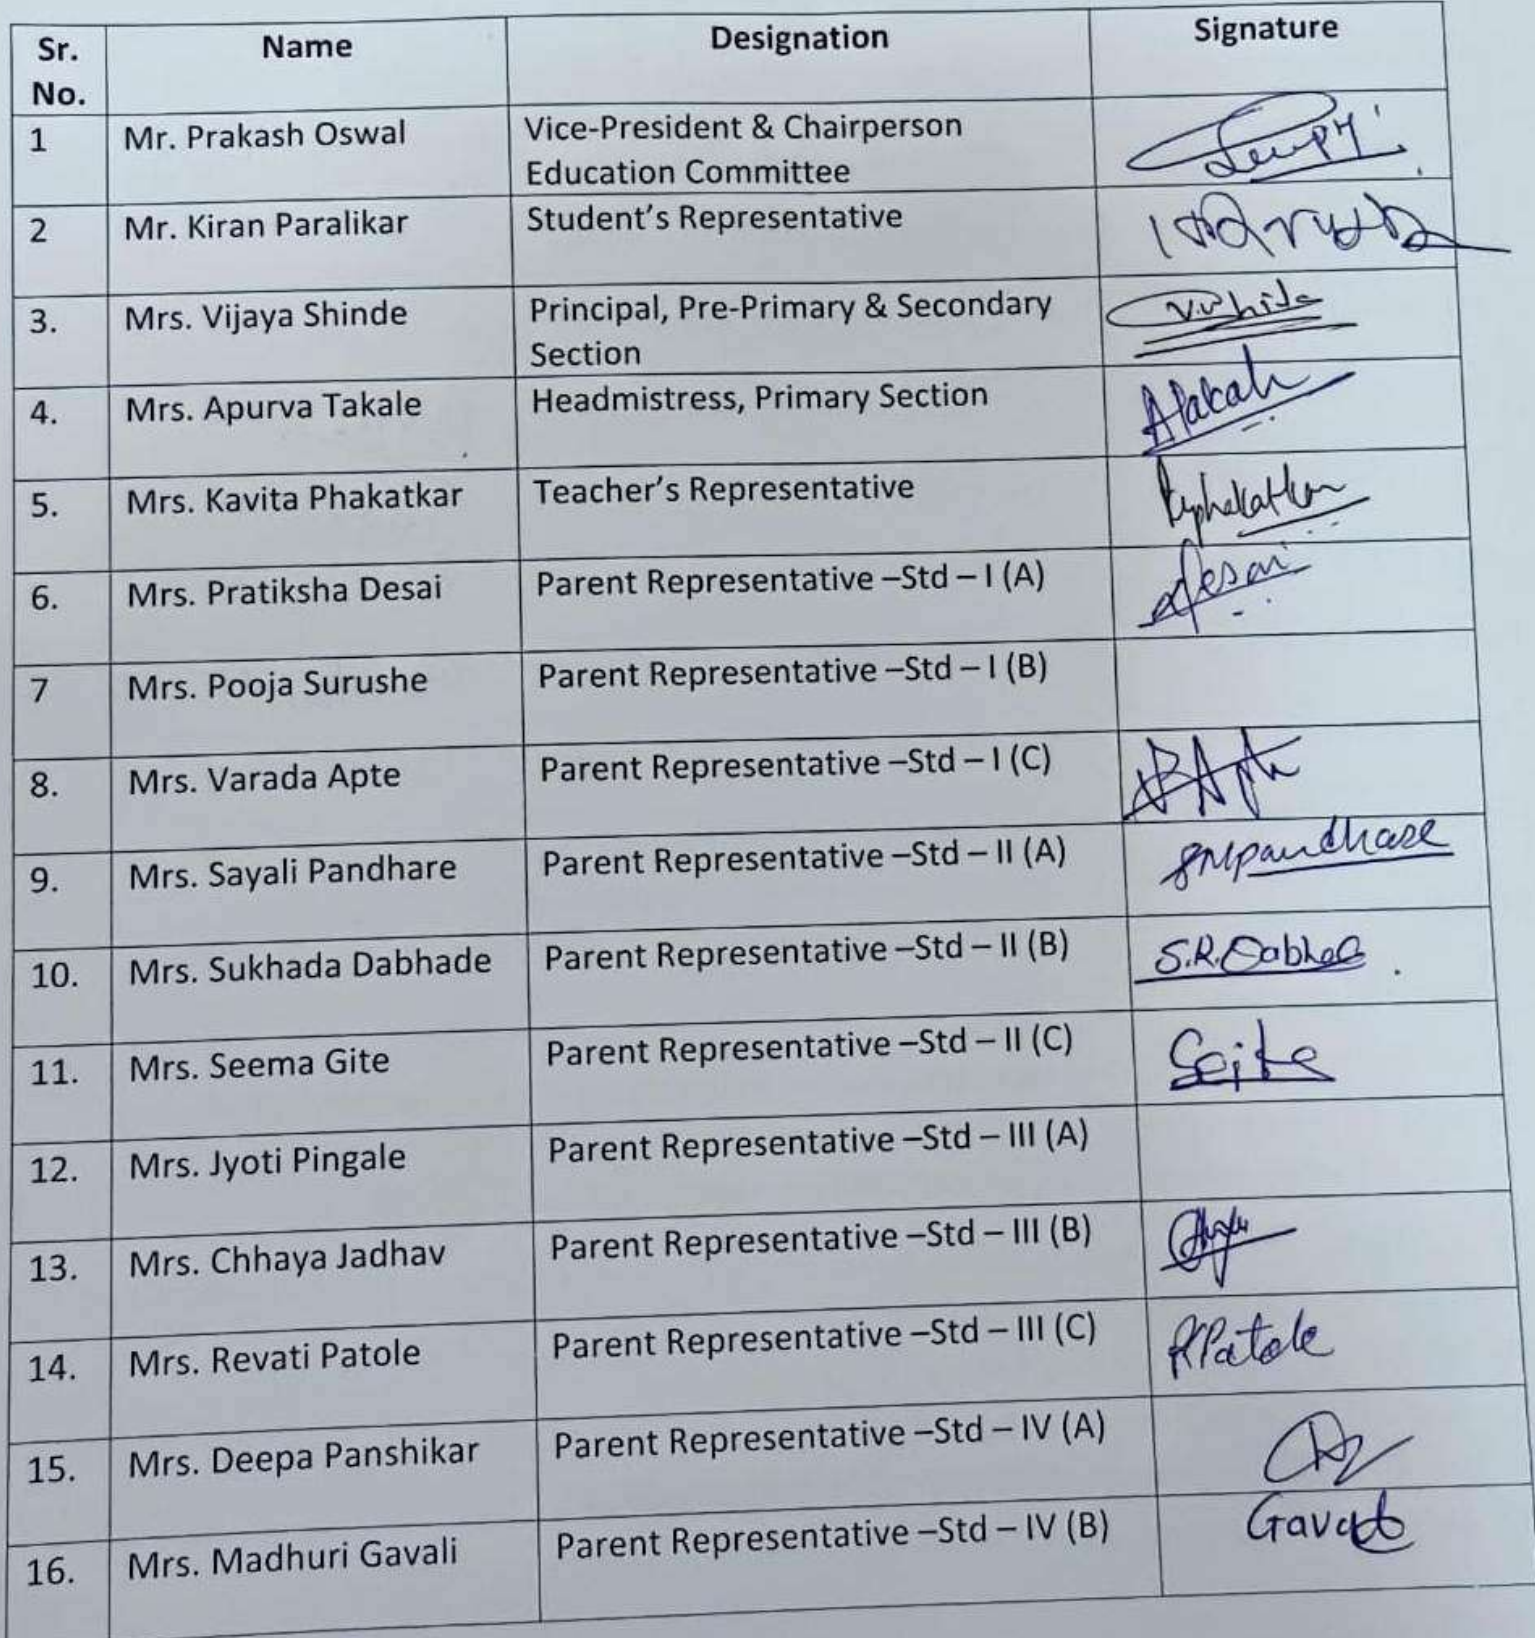 Sr. No. Name Designation Signature
1 Mr. Prakash Oswal Vice-President & Chairperson Education Committee
2 Mr. Kiran Paralikar Student's Representative
3. Mrs. Vijaya Shinde Principal, Pre-Primary & Secondary Section
4. Mrs. Apurva Takale Headmistress, Primary Section
5. Mrs. Kavita Phakatkar Teacher's Representative
6. Mrs. Pratiksha Desai Parent Representative –Std – I (A) Desai
7 Mrs. Pooja Surushe Parent Representative –Std – I (B)
8. Mrs. Varada Apte Parent Representative –Std – I (C)
9. Mrs. Sayali Pandhare Parent Representative –Std – II (A) pandhare
10. Mrs. Sukhada Dabhade Parent Representative –Std – II (B) S.R.
11. Mrs. Seema Gite Parent Representative –Std – II (C)
12. Mrs. Jyoti Pingale Parent Representative –Std – III (A)
13. Mrs. Chhaya Jadhav Parent Representative –Std – III (B)
14. Mrs. Revati Patole Parent Representative –Std – III (C) RPatole
15. Mrs. Deepa Panshikar Parent Representative –Std – IV (A)
16. Mrs. Madhuri Gavali Parent Representative –Std – IV (B)